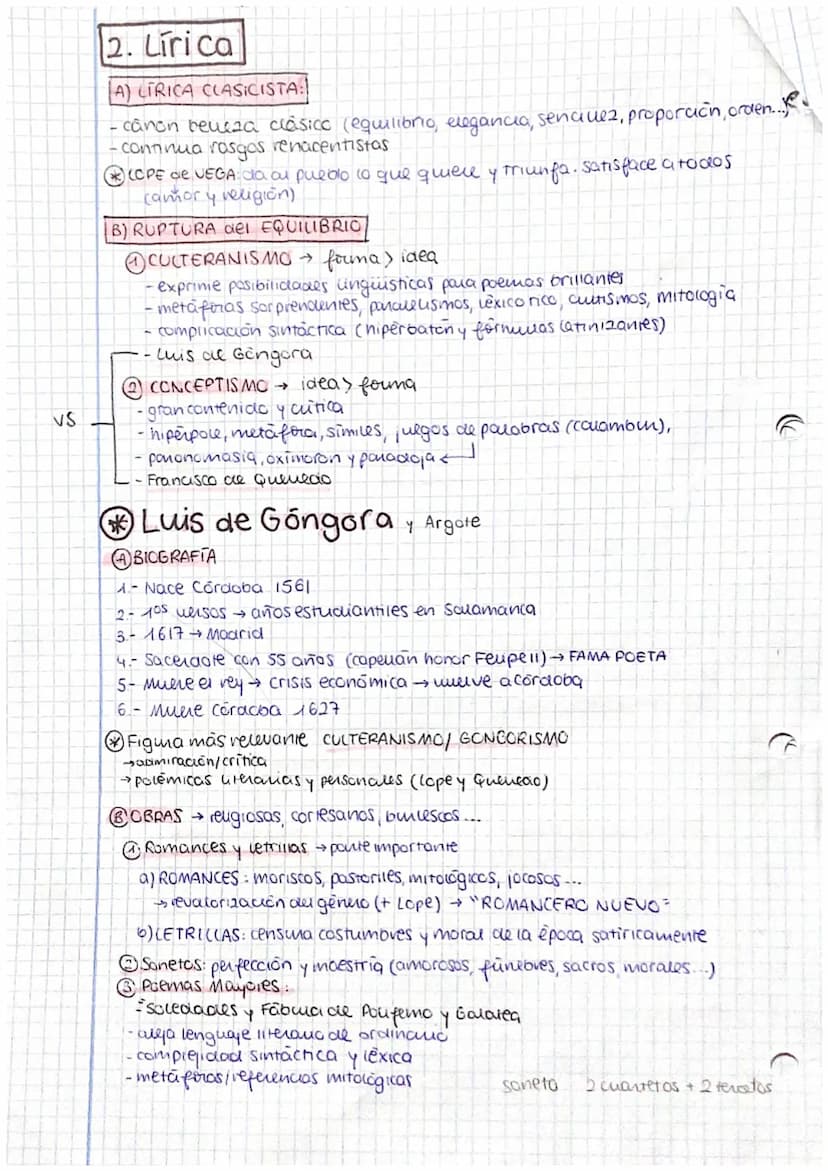 2. Lírica
A) LÍRICA CLASICISTA:
- cánon belleza clásico (equilibrio, elegancia, sencillez, proporción, orden...)
- continua rasgos renacentistas
* LOPE de VEGA: da al pueblo lo que quiere y triunfa. satisface a todos
(amor y religión)
B) RUPTURA del EQUILIBRIO
① CULTERANISMO → forma > idea
- exprime posibilidades lingüísticas para poemas brillantes
- metáforas sorprendentes, paralelismos, léxico rico, cultismos, mitología
- complicación sintáctica (hiperbatón y fórmulas latinizantes)
- Luis de Góngora
② CONCEPTISMO → idea > forma
- gran contenido y crítica
vs
- hipérbole, metáfora, símiles, juegos de palabras (calambur),
- paronomasia, oximoron y paradoja ←
- Francisco de Quevedo
* Luis de Góngora y Argote
Ⓐ BIOGRAFÍA
1.- Nace Córdoba 1561
2.- 1os versos → años estudiantiles en Salamanca
3.- 1617 → Madrid
4.- Sacerdote con 55 años (capellán honor Felipe II) → FAMA POETA
5- Muere el rey → crisis económica → vuelve a córdoba
6.- Muere Córdoba 1627
* Figura más relevante CULTERANISMO/ GONGORISMO
→ admiración/crítica
→ polémicas literarias y personales (Lope y Quevedo)
Ⓑ OBRAS → religiosas, cortesanos, burlescos...
① Romances y letrillas → parte importante
a) ROMANCES: moriscos, pastoriles, mitológicos, jocosos...
→ revalorización del género (+ Lope) → "ROMANCERO NUEVO"
b) LETRILLAS: censura costumbres y moral de la época satíricamente
② Sonetos: perfección y maestría (amorosos, fúnebres, sacros, morales...)
③ Poemas Mayores:
- Soledades y Fábula de Polifemo y Galatea
- aleja lenguaje literario de ordinario
- complejidad sintáctica y léxica
- metáforas/referencias mitológicas
soneto 2 cuartetos + 2 tercetos